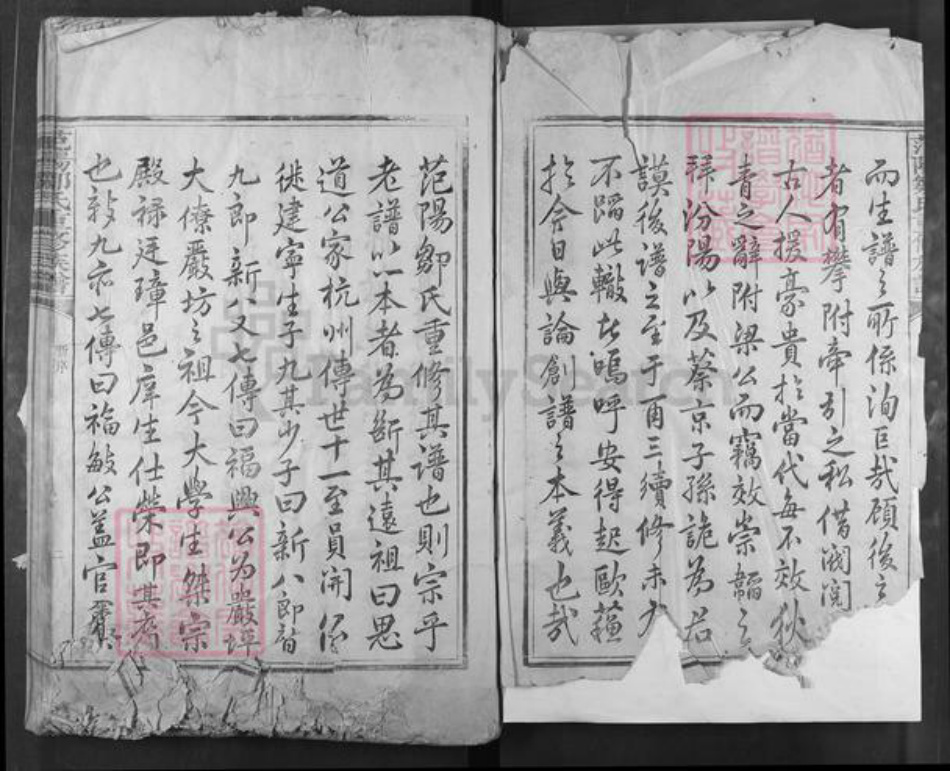 而生譜之所係洵巨哉顧後之
者有攀附牽引之私借閥閱
古人援豪貴於當代每不效狄
青之辭附梁公而竊效崇韜之
拜汾陽以及蔡京子孫詭為君
謨後譜之至于再三續修未
不蹈此轍者嗚呼安得起歐蘇
於今日與論創譜之本義也哉
范陽鄒氏重修其譜也則宗乎
老譜以一本者為斷其遠祖曰思
道公家杭州傳世十一至員開公
徙建寧生子九其少子曰新八郎
九郎新八又七傳曰福興公為嚴坪
大僚嚴坊之祖今大學生桀宗
殿祿廷璋邑庠生仕榮即其裔
也敦九亦七傳曰福敏公益官
FamilySearch